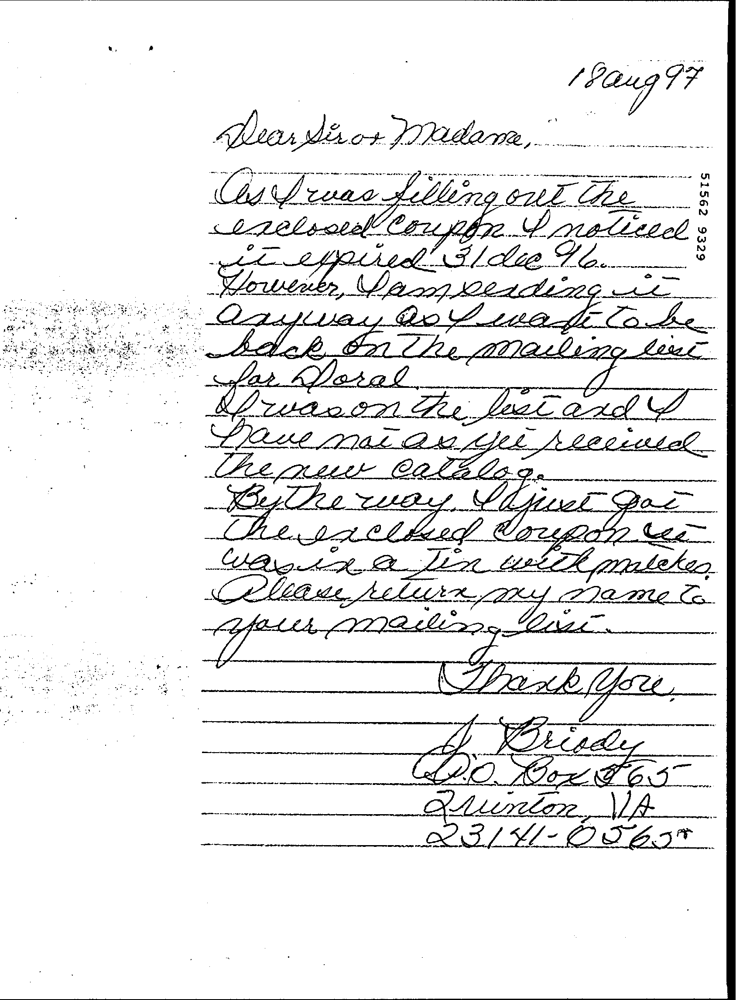 18 Aug 97
Dear Sir or Madame,
As I was filling out the
enclosed coupon I noticed
it expired 31 dec 96.
However, I am sending it
anyway as I want to be
back on the mailing list
for Doral.
I was on the list and I
have not as yet received
the new catalog.
By the way, I just got
the enclosed coupon it
was in a Tin with matches.
Please return my name to
your mailing list.
Thank You,
J. Briody
P.O. Box 565
Quinton, VA
23141-0565
51562 9329